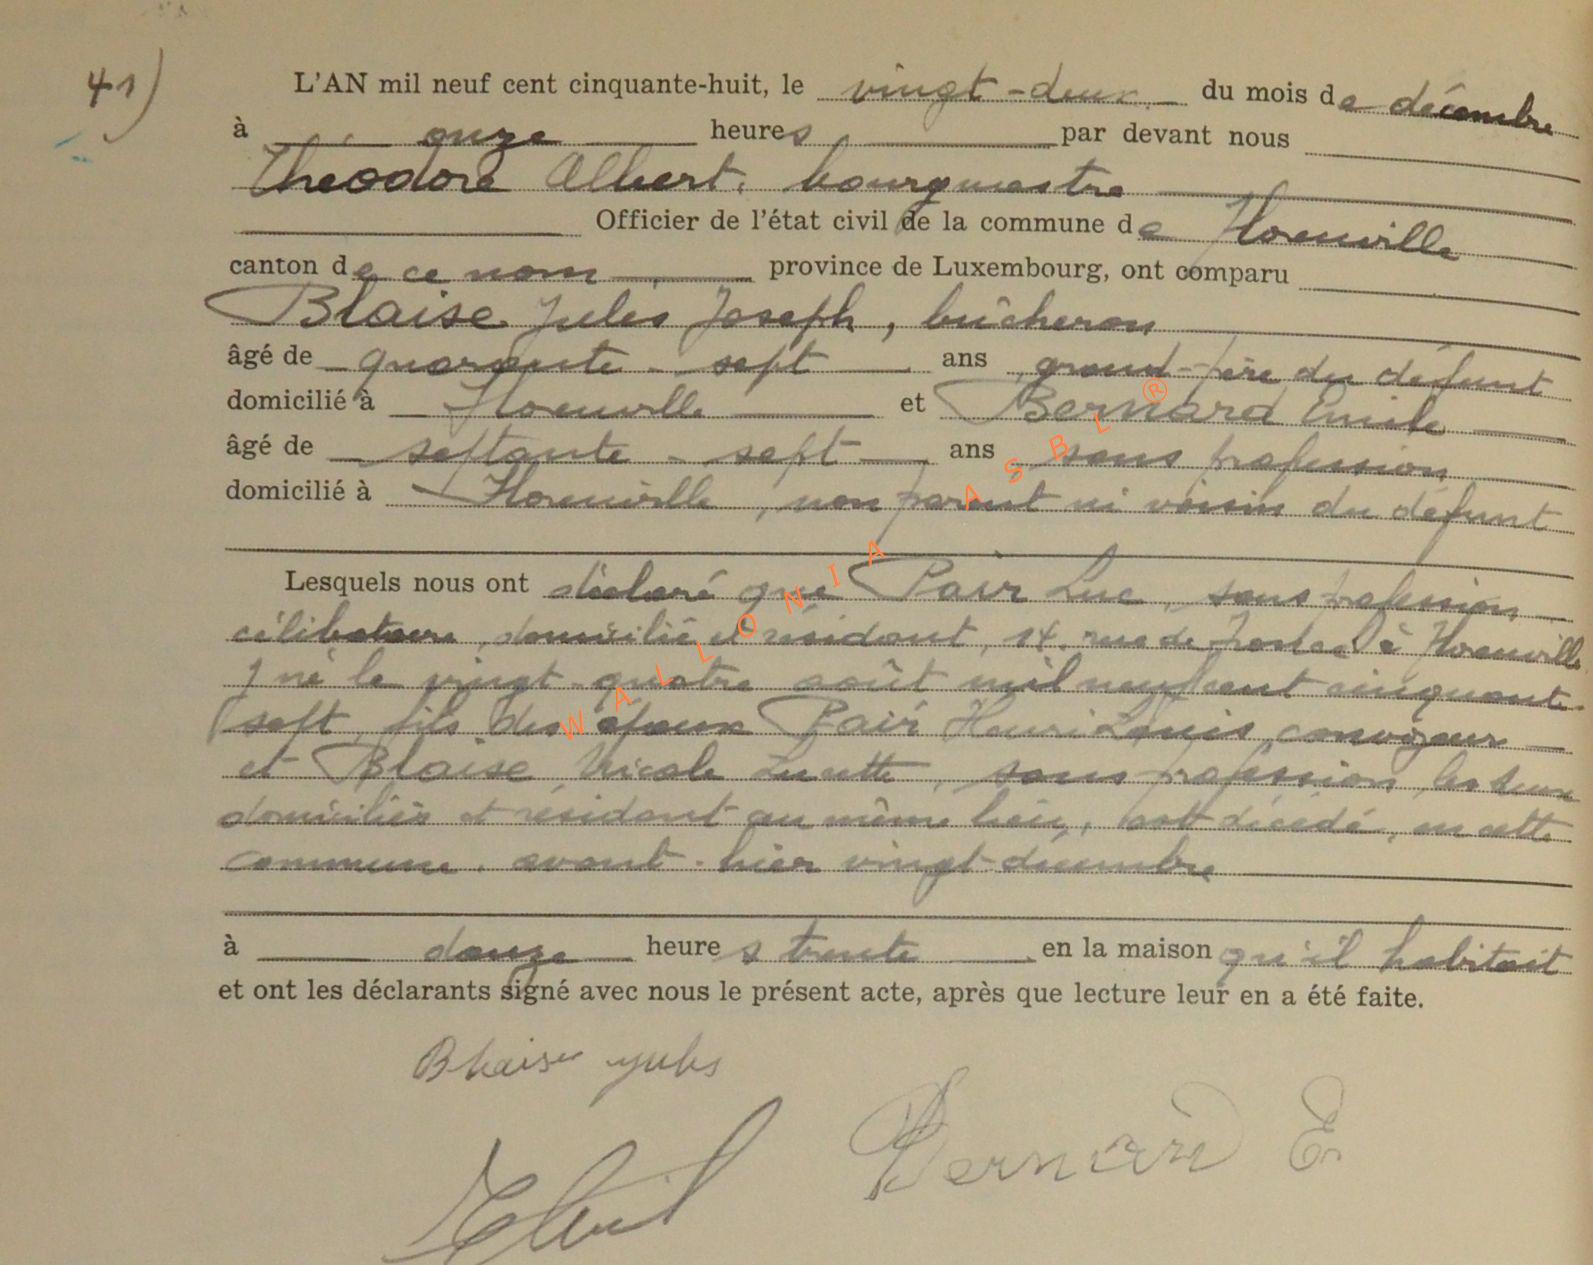 41)
L'AN mil neuf cent cinquante-huit, le vingt-deux du mois de décembre
à onze heures par devant nous
Théodore Albert, bourgmestre
Officier de l'état civil de la commune de Florenville
canton de ce nom province de Luxembourg, ont comparu
Blaise Jules Joseph, bûcheron
âgé de quarante-sept ans grand-père du défunt
domicilié à Florenville et Bernard Emile
âgé de septante-sept ans sans profession
domicilié à Florenville, non parent ni voisin du défunt
Lesquels nous ont déclaré que Pair Luc, sans profession,
célibataire, domicilié et résidant, 14, rue de à Florenville
né le vingt-quatre août mil neuf cent cinquante-
sept, fils des époux Pair Henri Louis, convoyeur
et Blaise Nicole Lucette, sans profession, les deux
domiciliés et résidant au même lieu, est décédé, en cette
commune, avant-hier vingt décembre
à douze heures trente en la maison qu'il habitait
et ont les déclarants signé avec nous le présent acte, après que lecture leur en a été faite.
Blaise Jules
Bernard E
Albert
WALLONIA ASBL ®